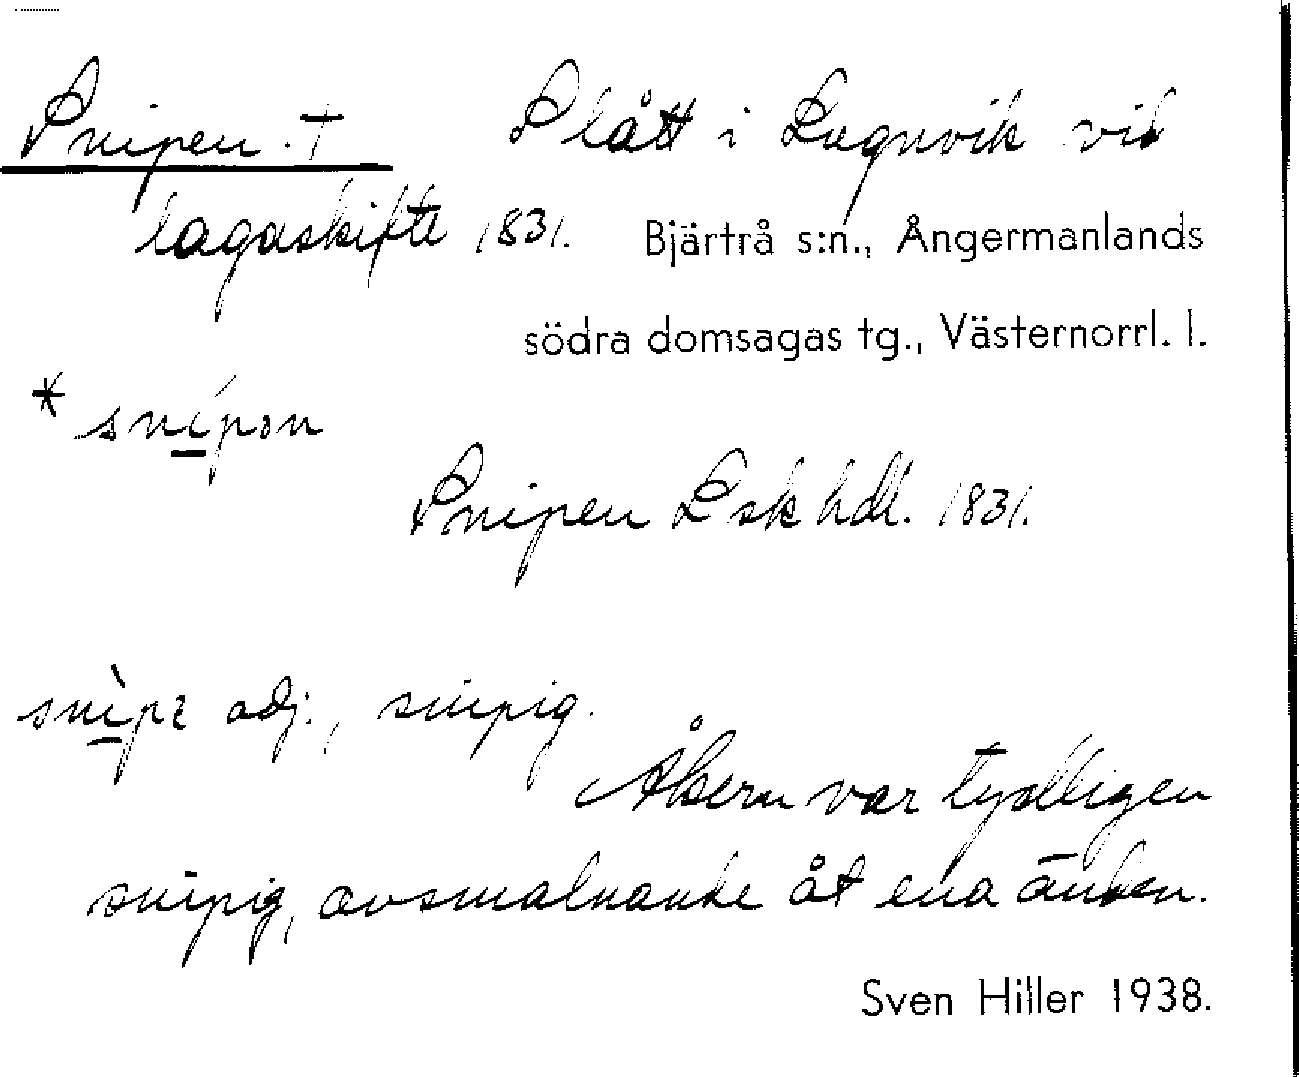 Snipen. †   Plått i Lugnvik vid
lagaskifte 1831.   Bjärtrå s:n., Ångermanlands
södra domsagas tg., Västernorrl. l.
* snípon
Snipen Lsk hdl. 1831.
snìpɩ adj., snipig.
Åkern var tydligen
snipig, avsmalnande åt ena änden.
Sven Hiller 1938.